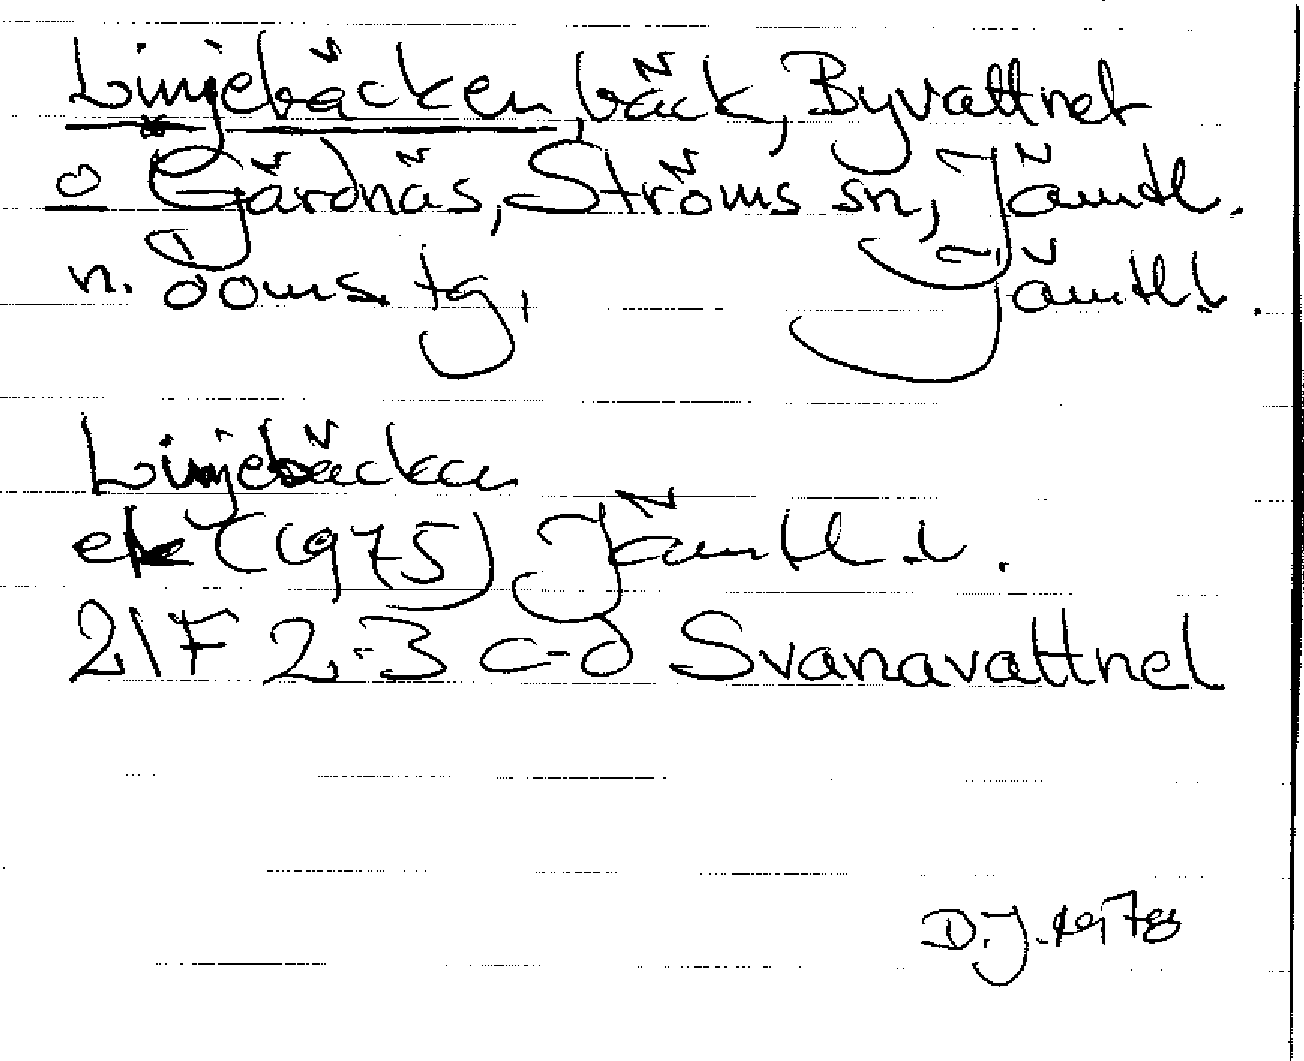 Linjebäcken, bäck, Byvattnet
o Gärdnäs, Ströms sn, Jämtl.
n. doms. tg, Jämtl l.
Linjebäcken
ek (1975) Jämtl l.
21F 2-3 c-d Svanavattnet
D.J. 1978